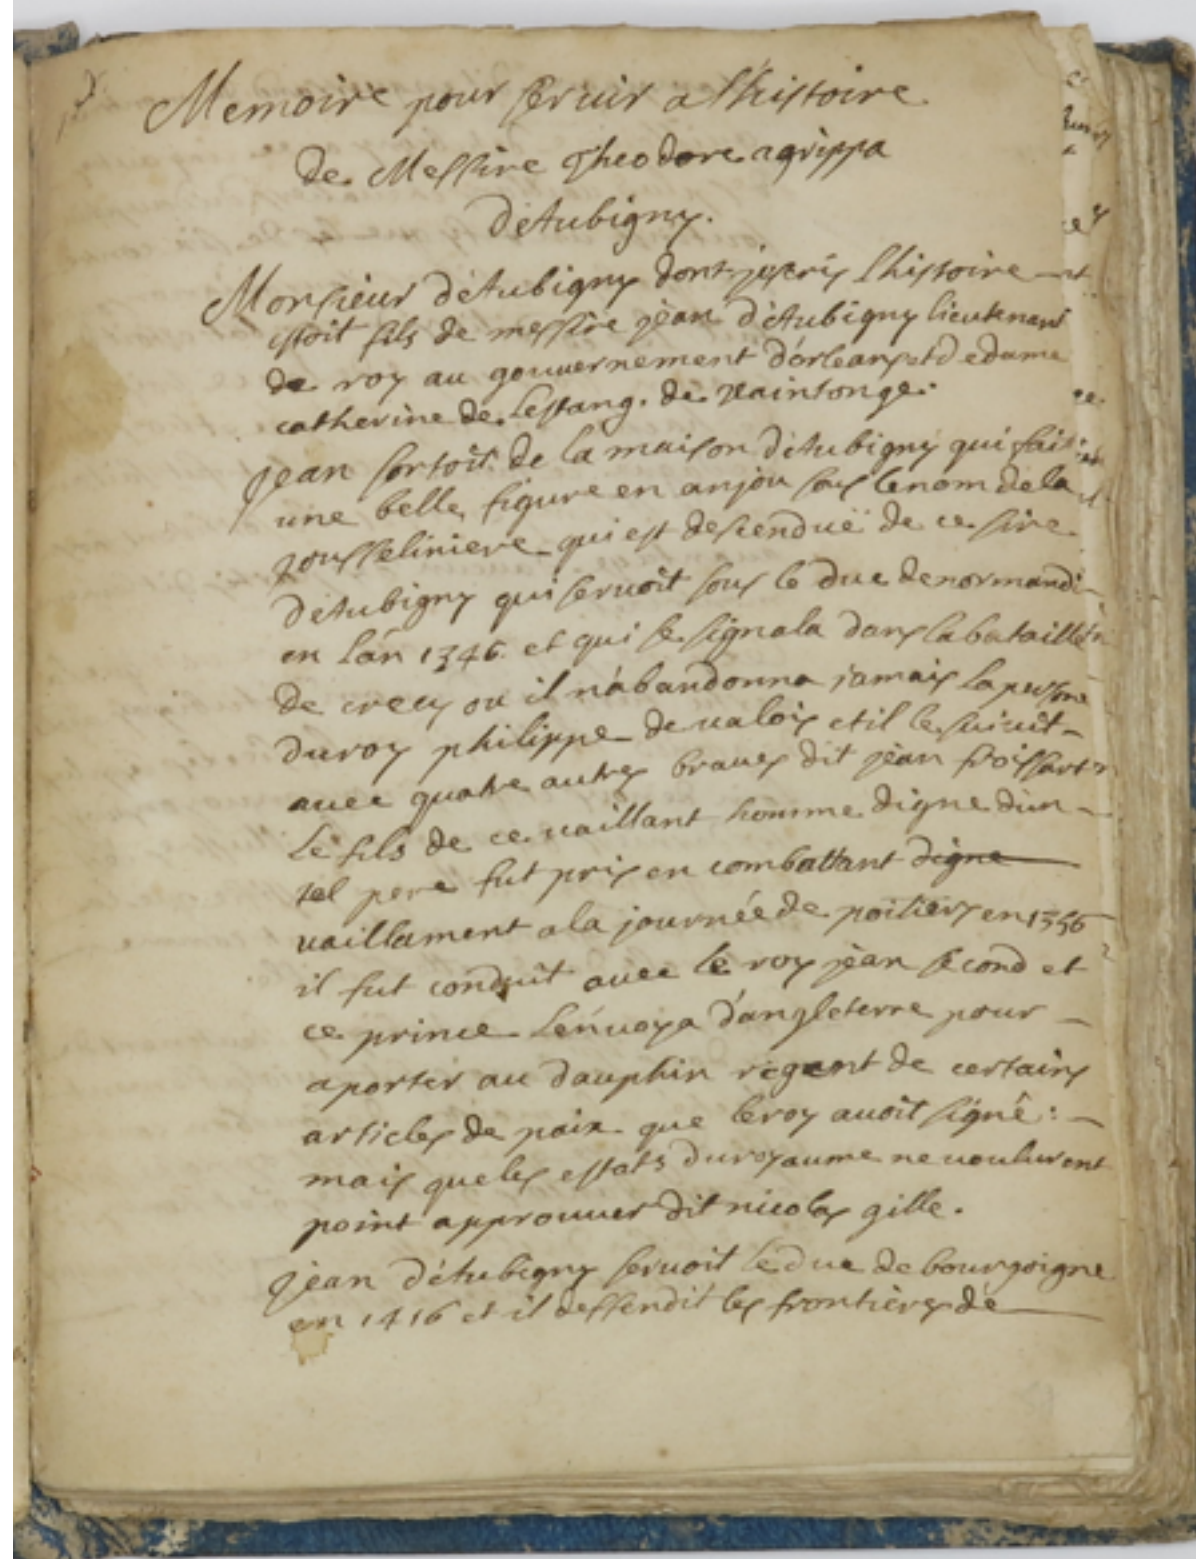 Memoire pour servir a lhistoire
de Messire Theodore agrippa
d'Aubigny.
Monsieur d'Aubigny dont jescris lhistoire
estoit fils de messire jean d'Aubigny lieutenant
de roy au gouvernement d'orleans et de dame
catherine de Lestang. de Xaintonge.
jean sortoit de la maison d'Aubigny qui fait
une belle figure en anjou sous le nom de la
jousseliniere qui est descenduë de ce sire
d'Aubigny qui servoit sous le duc de normandi
en lan 1346 et qui se signala dans la bataille
de crecy ou il n'abandonna jamais la persone
du roy philippe de valois et il le suivit
avec quatre autres braves dit jean froissart
le fils de ce vaillant homme digne d'un
tel pere fut pris en combattant digne
vaillament a la journée de poitiers en 1356
il fut conduit avec le roy jean second et
ce prince l'envoya d'angleterre pour
aporter au dauphin regent de certains
articles de paix que le roy avoit signé:
mais que les estats du royaume ne voulurent
point approuver dit nicolas gille.
jean d'Aubigny servoit le duc de bourgoigne
en 1416 et il deffendit les frontieres de